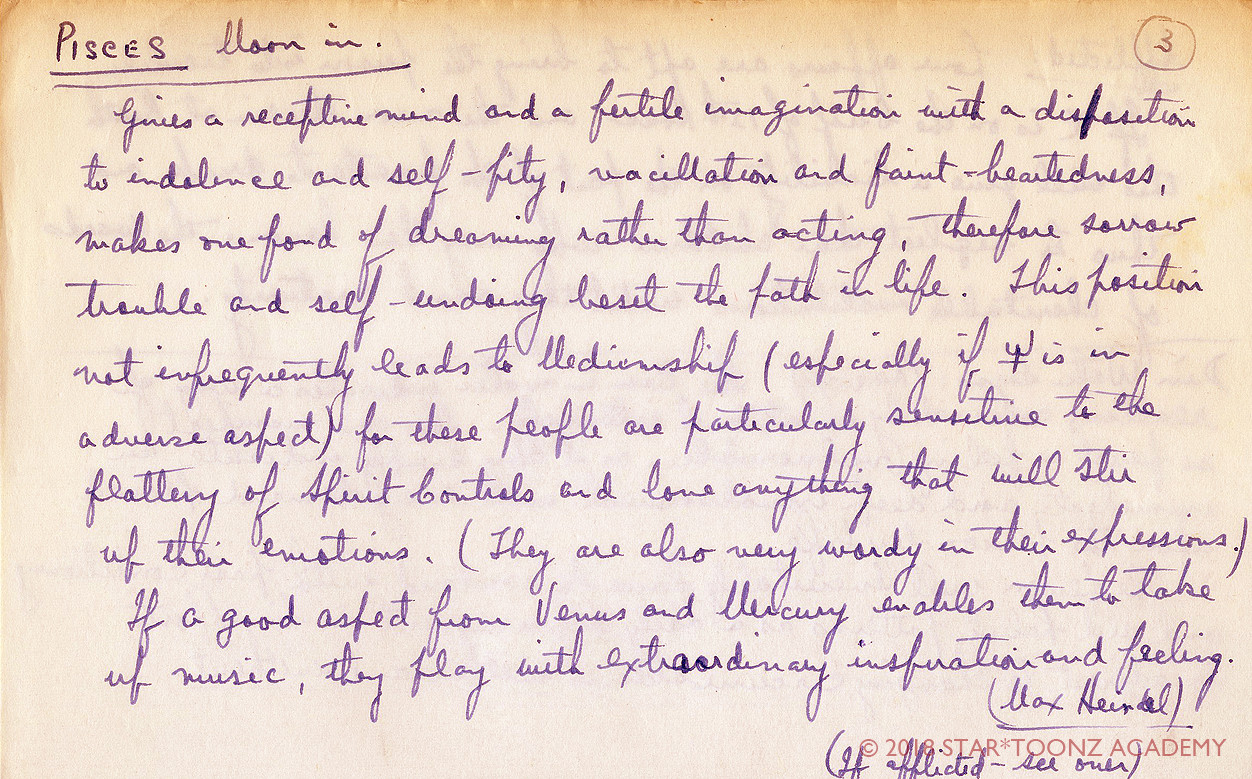 PISCES Moon in. 3
Gives a receptive mind and a fertile imagination with a disposition
to indolence and self-pity, vacillation and faint-heartedness,
makes one fond of dreaming rather than acting, therefore sorrow
trouble and self-undoing beset the path in life. This position
not infrequently leads to Mediumship (especially if ♆ is in
adverse aspect) for these people are particularly sensitive to the
flattery of Spirit Controls and love anything that will stir
up their emotions. (They are also very wordy in their expressions.)
If a good aspect from Venus and Mercury enables them to take
up music, they play with extraordinary inspiration and feeling.
(Max Heindel)
© 2018 STAR*TOONZ ACADEMY
(If afflicted - see over)